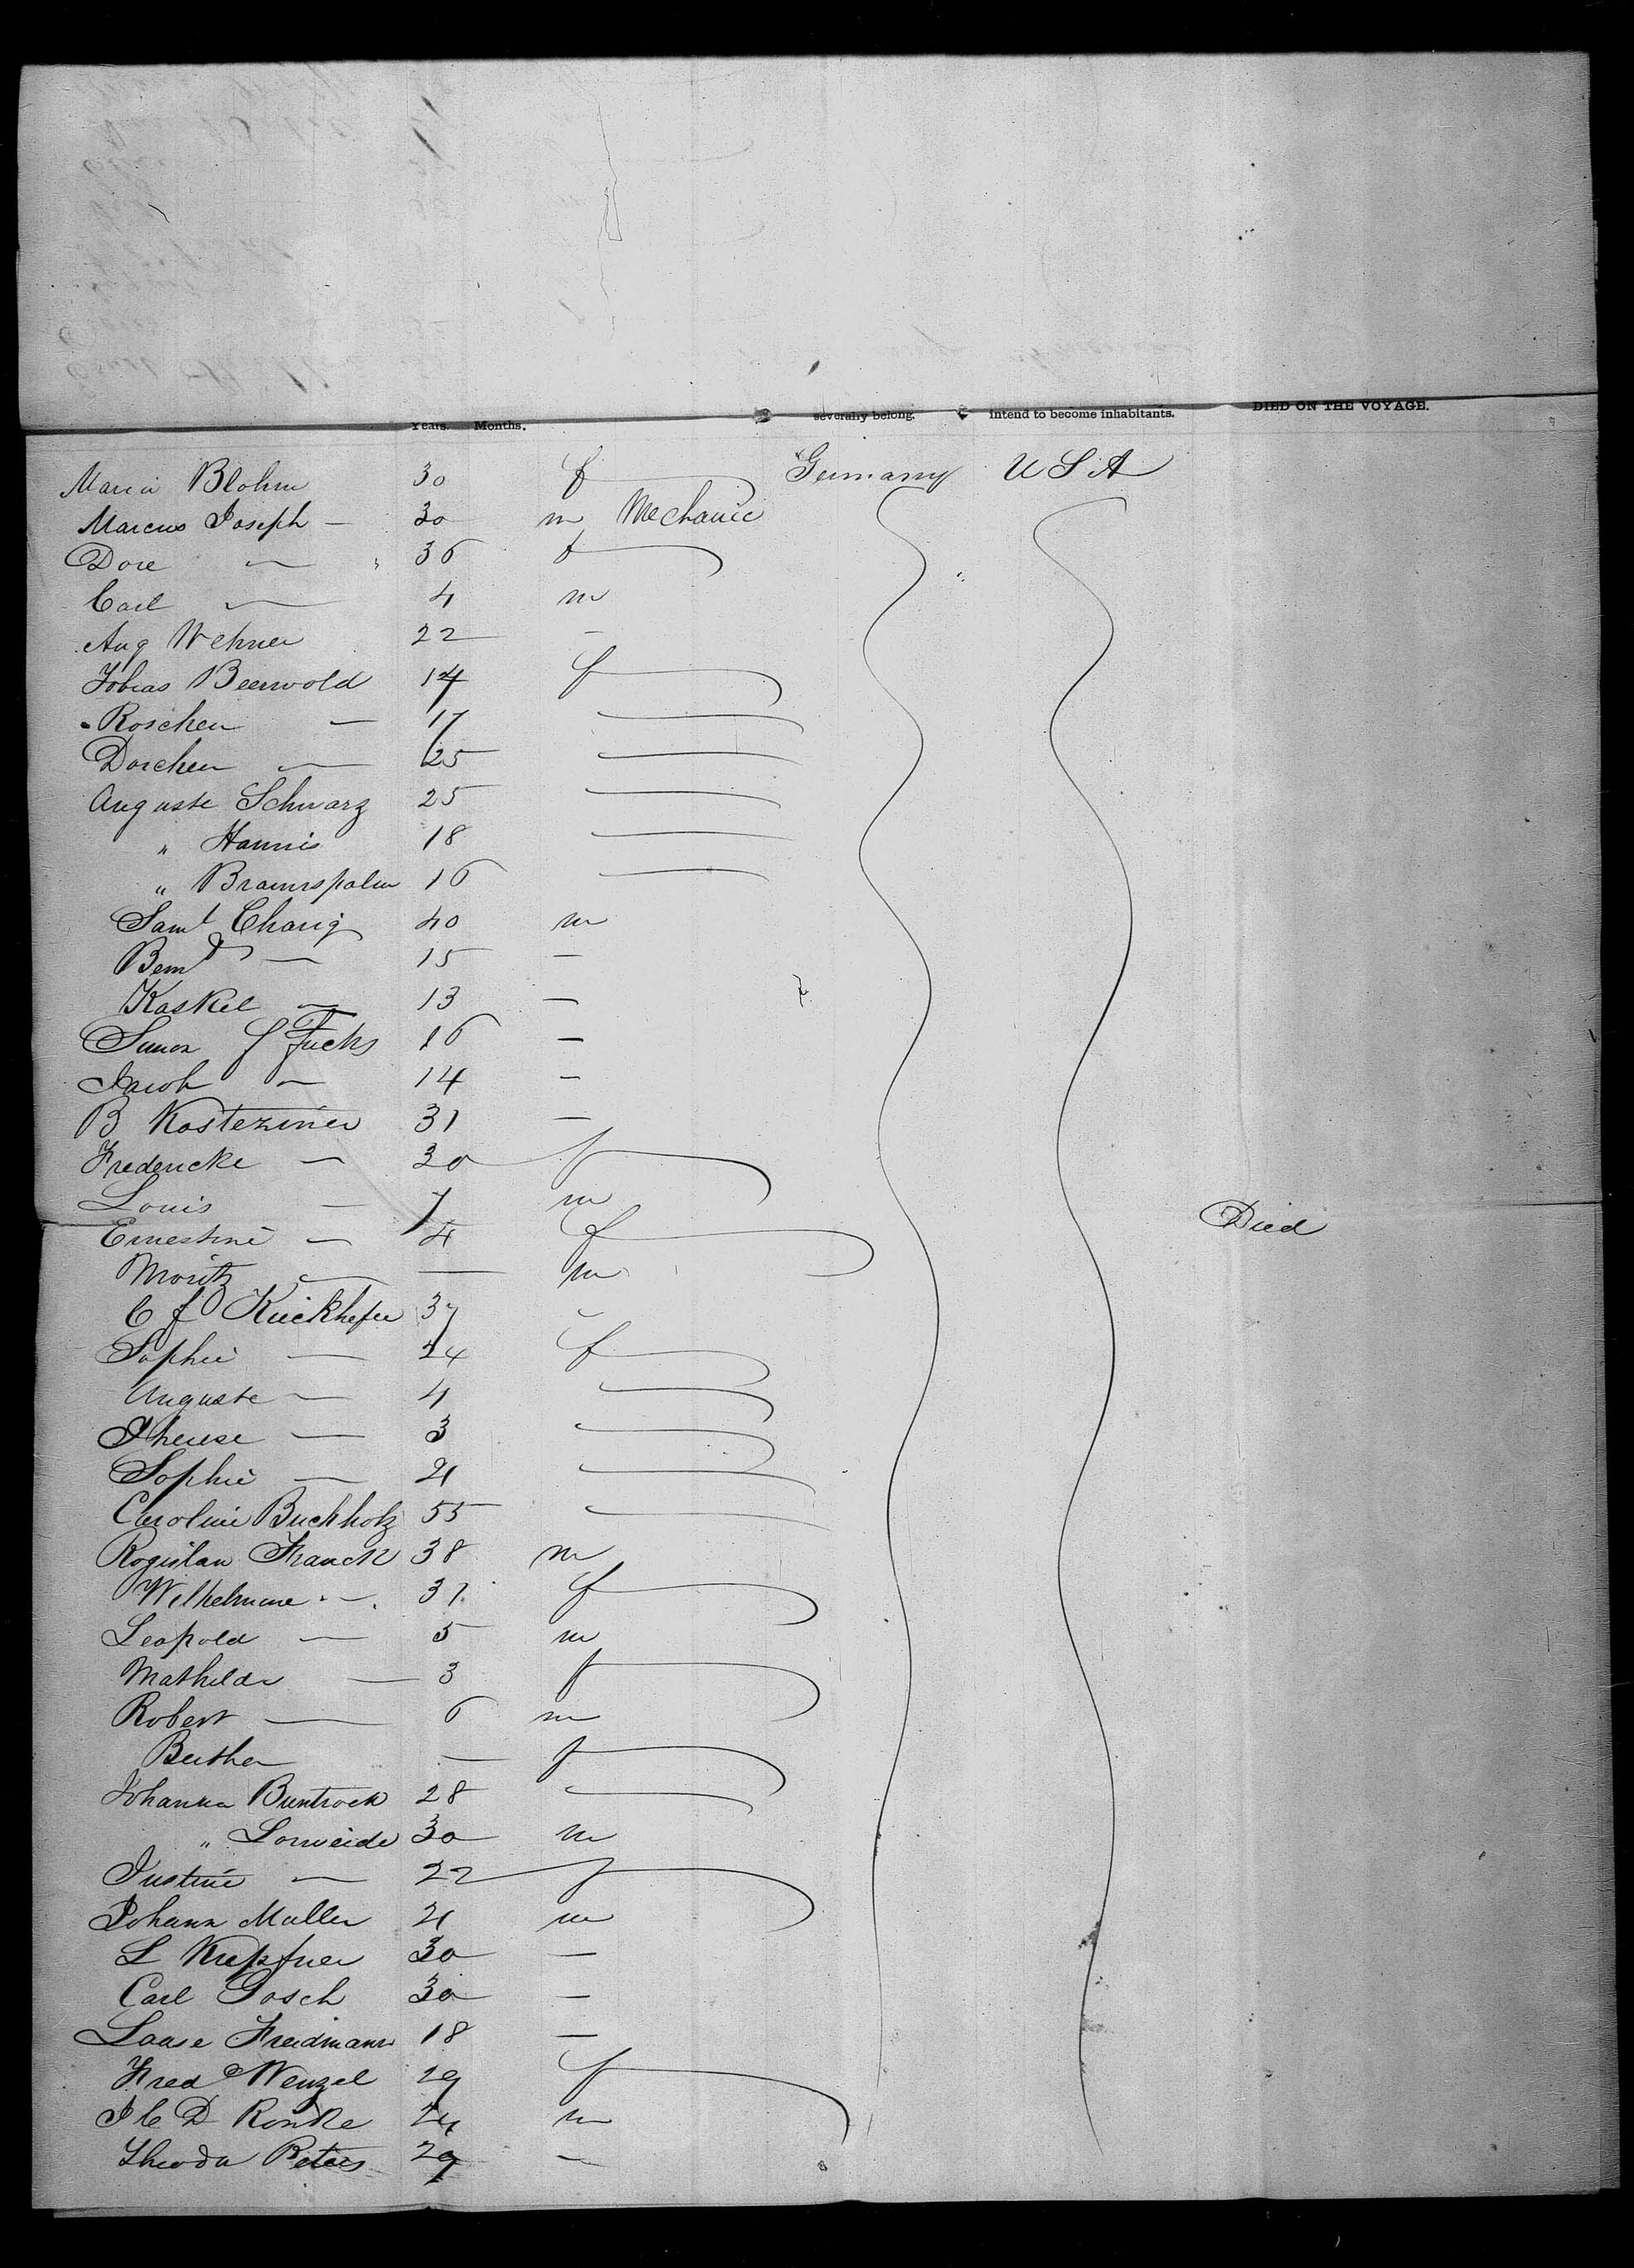 Years. Months. severally belong. intend to become inhabitants. DIED ON THE VOYAGE.
Maria Blohm 30 f Germany U S A
Marcus Joseph — 30 m Mechanic
Dore — 36 f
Carl — 4 m
Aug Wehner 22 —
Tobias Beerwold 14 f
Roschen — 17
Dorchen — 25
Auguste Schwarz 25
" Hannis 18
" 16
Saml Charig 40 m
— 15 —
Kaskel — 13 —
Simon Fuchs 16 —
Jacob — 14 —
B Kosteziner 31 —
Fredericke — 30 f
Louis — 7 m
Ernestine — 4 f Died
Moritz — — m
C f Kuckhefer 37
Sophie — 24 f
Auguste — 4
Therese — 3
Sophie — 21
Caroline Buchholz 55
Franck 38 m
Wilhelmine — 31 f
Leopold — 5 m
Mathilde — 3 f
Robert — 6 m
Bertha — f
Johanna Buntrock 28
" 30 m
Justine — 22 f
Johann Muller 21 m
L 30 —
Carl Gosch 30 —
Freidmann 18 —
Fred Wenzel 29 f
J C D Ronke 24 m
Theodor Peters 29 —